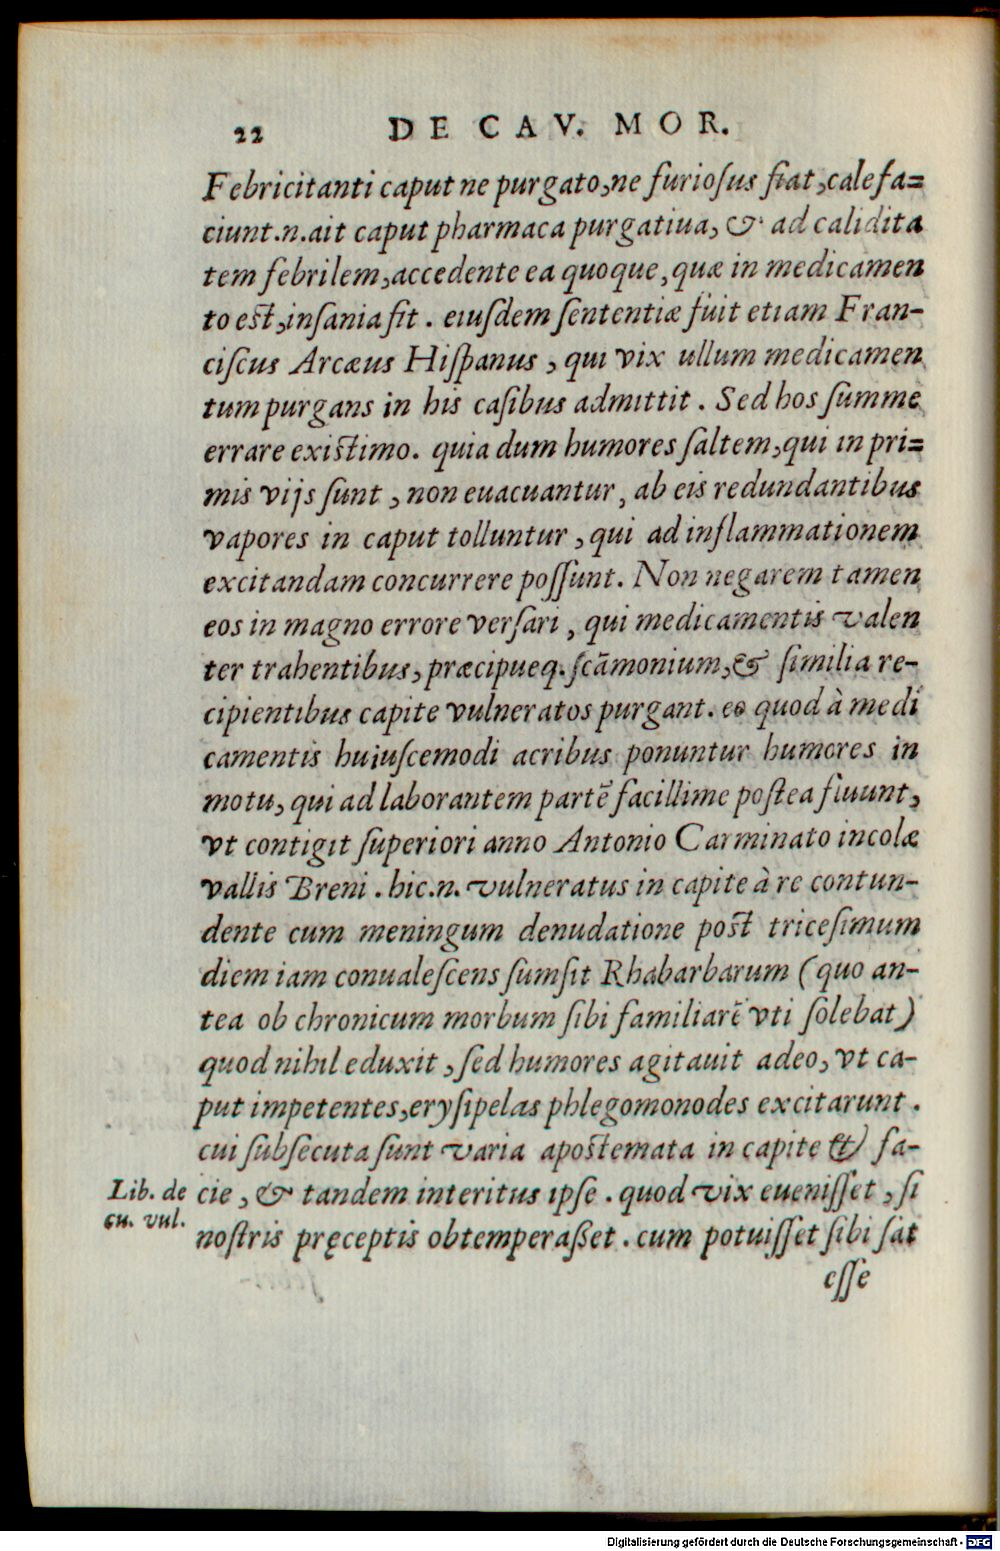 22 DE CAV. MOR.
Febricitanti caput ne purgato, ne furioſus fiat, calefa=
ciunt.n.ait caput pharmaca purgatiua, & ad calidita
tem febrilem, accedente ea quoque, quæ in medicamen
to eſt, inſania fit. eiuſdem ſententiæ fuit etiam Fran-
ciſcus Arcæus Hiſpanus, qui vix ullum medicamen
tum purgans in his caſibus admittit. Sed hos ſumme
errare exiſtimo. quia dum humores ſaltem, qui in pri=
mis vijs ſunt, non euacuantur, ab eis redundantibus
vapores in caput tolluntur, qui ad inflammationem
excitandam concurrere poſſunt. Non negarem tamen
eos in magno errore verſari, qui medicamentis valen
ter trahentibus, præcipueq. ſcāmonium, & ſimilia re-
cipientibus capite vulneratos purgant. eo quod à medi
camentis huiuſcemodi acribus ponuntur humores in
motu, qui ad laborantem partē facillime poſtea fluunt,
vt contigit ſuperiori anno Antonio Carminato incolæ
vallis Breni. hic.n. vulneratus in capite à re contun-
dente cum meningum denudatione poſt triceſimum
diem iam conualeſcens ſumſit Rhabarbarum (quo an-
tea ob chronicum morbum ſibi familiarē vti ſolebat)
quod nihil eduxit, ſed humores agitauit adeo, vt ca-
put impetentes, eryſipelas phlegomonodes excitarunt.
cui ſubſecuta ſunt varia apoſtemata in capite & fa-
cie, & tandem interitus ipſe. quod vix eueniſſet, ſi
Lib. de
cu. vul.
noſtris pręceptis obtemperaßet. cum potuiſſet ſibi ſat
eſſe
Digitalisierung gefördert durch die Deutsche Forschungsgemeinschaft - DFG